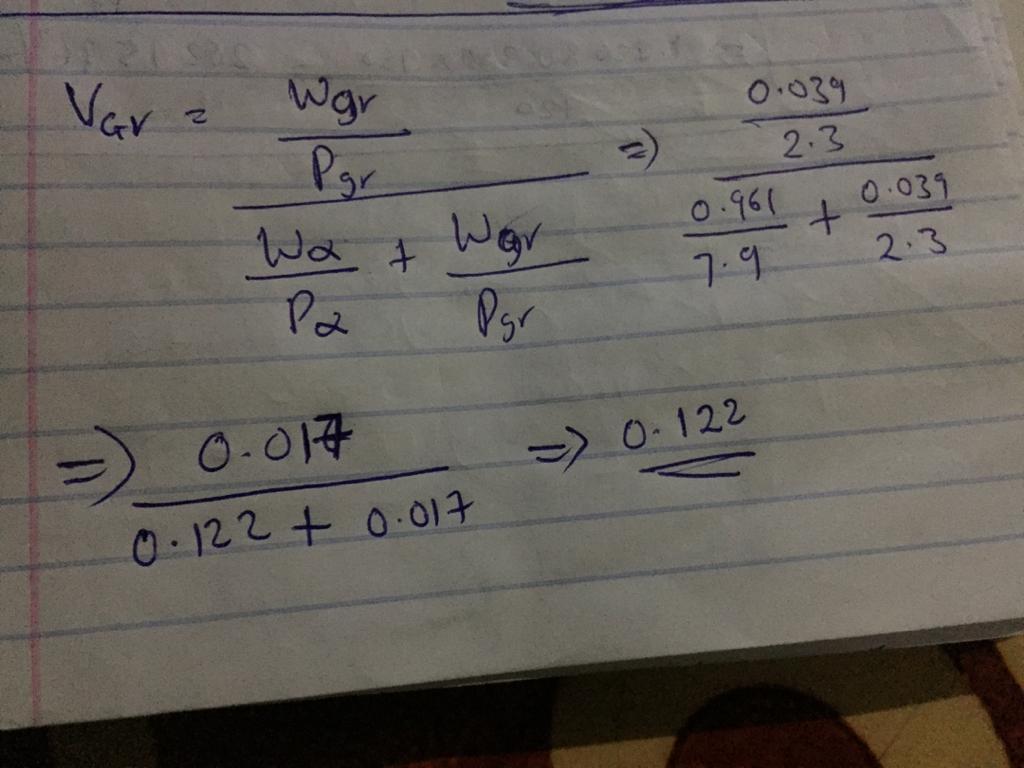 V_Gr = \frac{\frac{W_{gr}}{P_{gr}}}{\frac{W_α}{P_α} + \frac{W_{gr}}{P_{gr}}} => \frac{\frac{0.039}{2.3}}{\frac{0.961}{7.9} + \frac{0.039}{2.3}}
=> \frac{0.017}{0.122 + 0.017} => 0.122